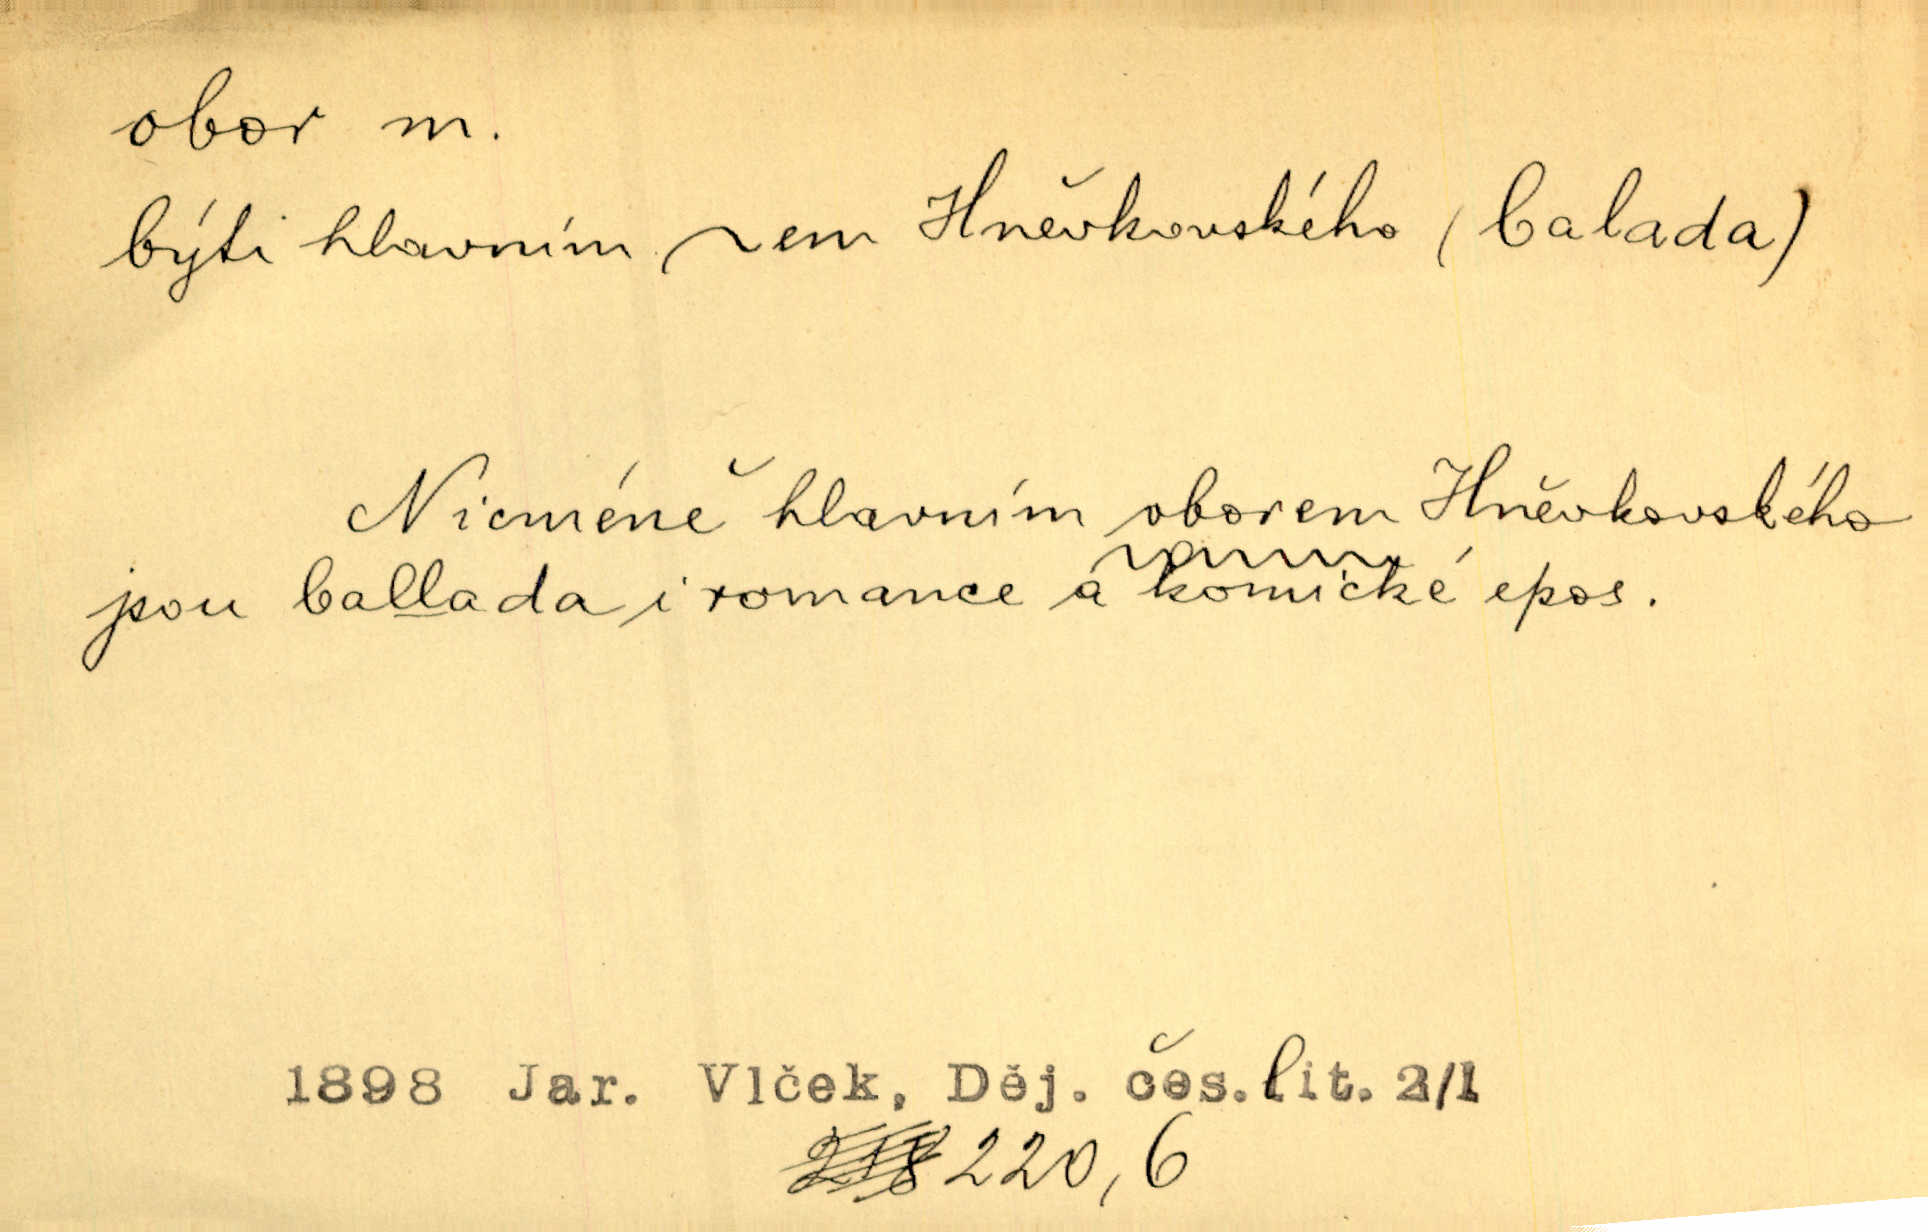 obor m.
býti hlavním ~em Hněvkovského (balada)
Nicméně hlavním oborem Hněvkovského
jsou ballada i romance a komické epos.
1898 Jar. Vlček, Děj. čes. lit. 2/1
220,6